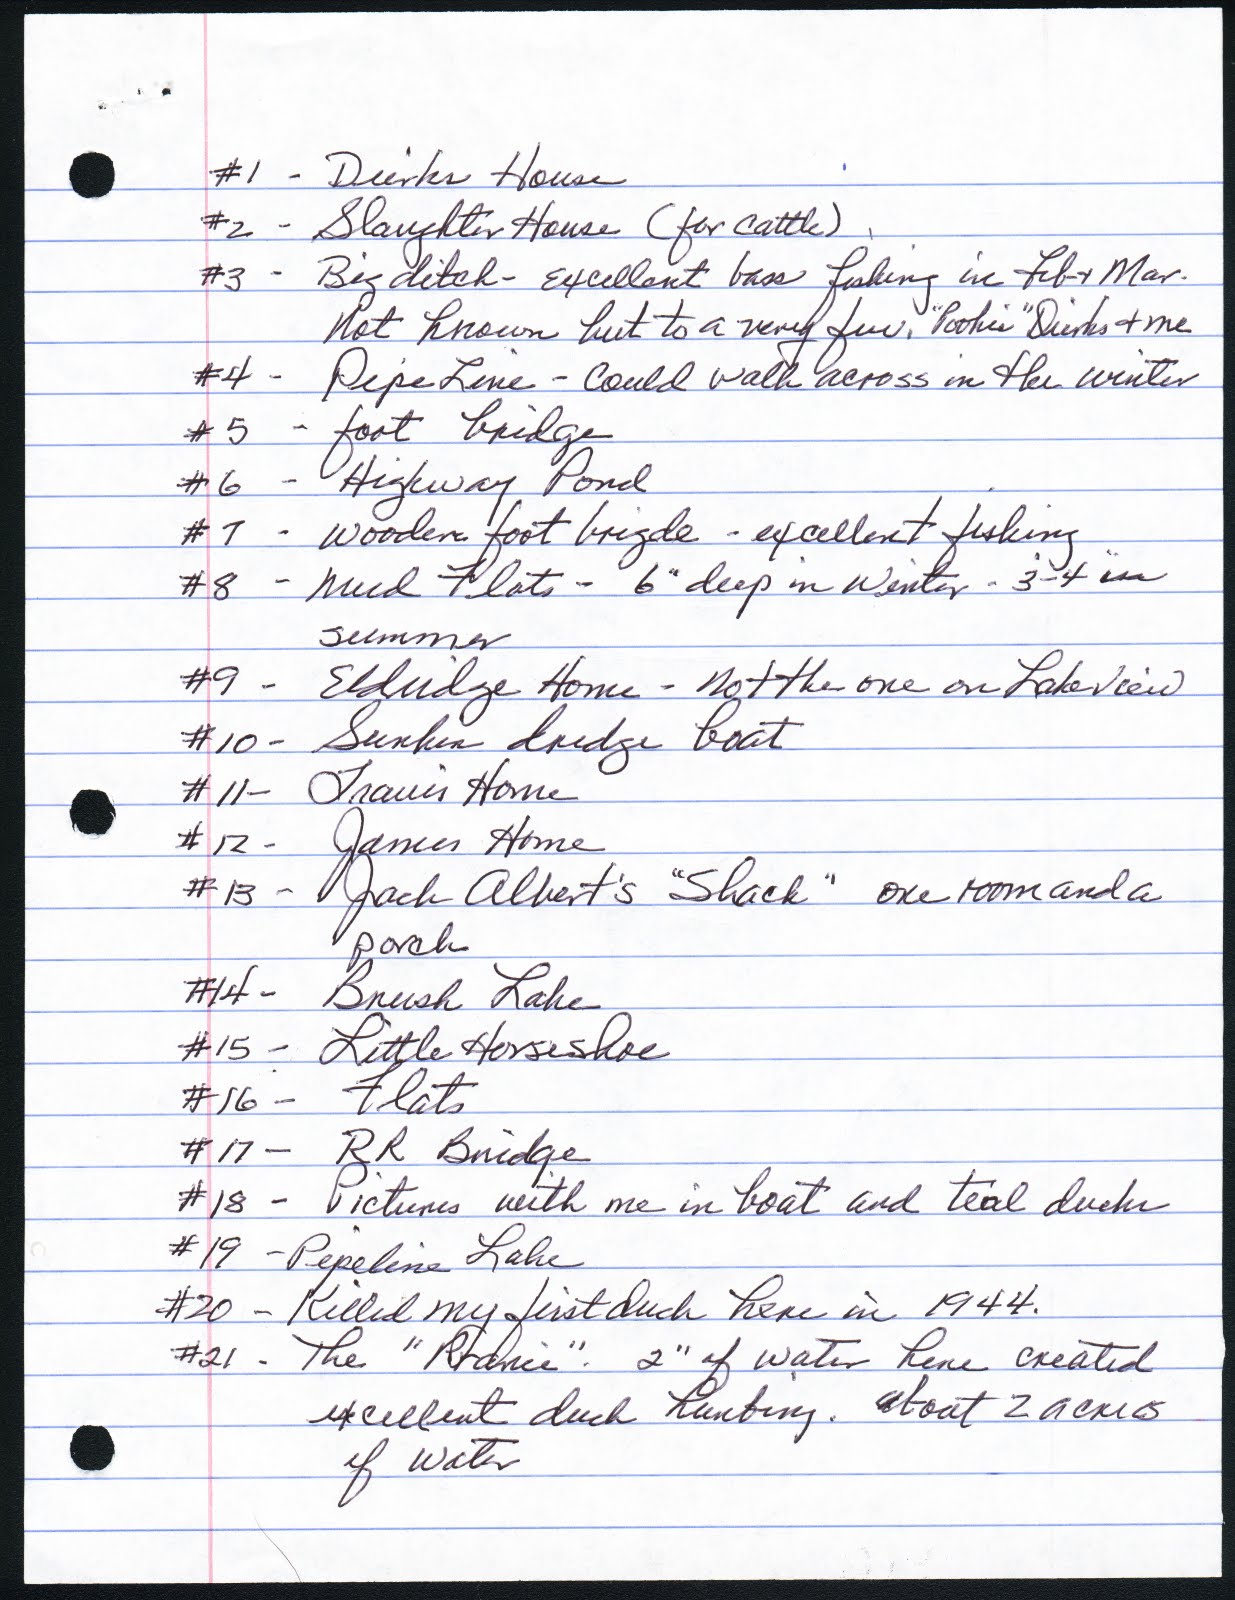 #1 - Dierks House
#2 - Slaughter House (for cattle)
#3 - Big ditch - excellent bass fishing in Feb + Mar.
Not known but to a very few. "Pookie" Dierks + me
#4 - Pipe Line - Could walk across in the winter
#5 - foot bridge
#6 - Highway Pond
#7 - wooden foot brigde - excellent fishing
#8 - Mud Flats - 6" deep in winter - 3-4" in
summer
#9 - Eldridge Home - Not the one on Lakeview
#10 - Sunken dredge boat
#11 - Travis Home
#12 - James Home
#13 - Jack Albert's "Shack" one room and a
porch
#14 - Brush Lake
#15 - Little Horseshoe
#16 - Flats
#17 - RR Bridge
#18 - Pictures with me in boat and teal ducks
#19 - Pipeline Lake
#20 - Killed my first duck here in 1944.
#21 - The "Prairie". 2" of water here created
excellent duck hunting. about 2 acres
of water